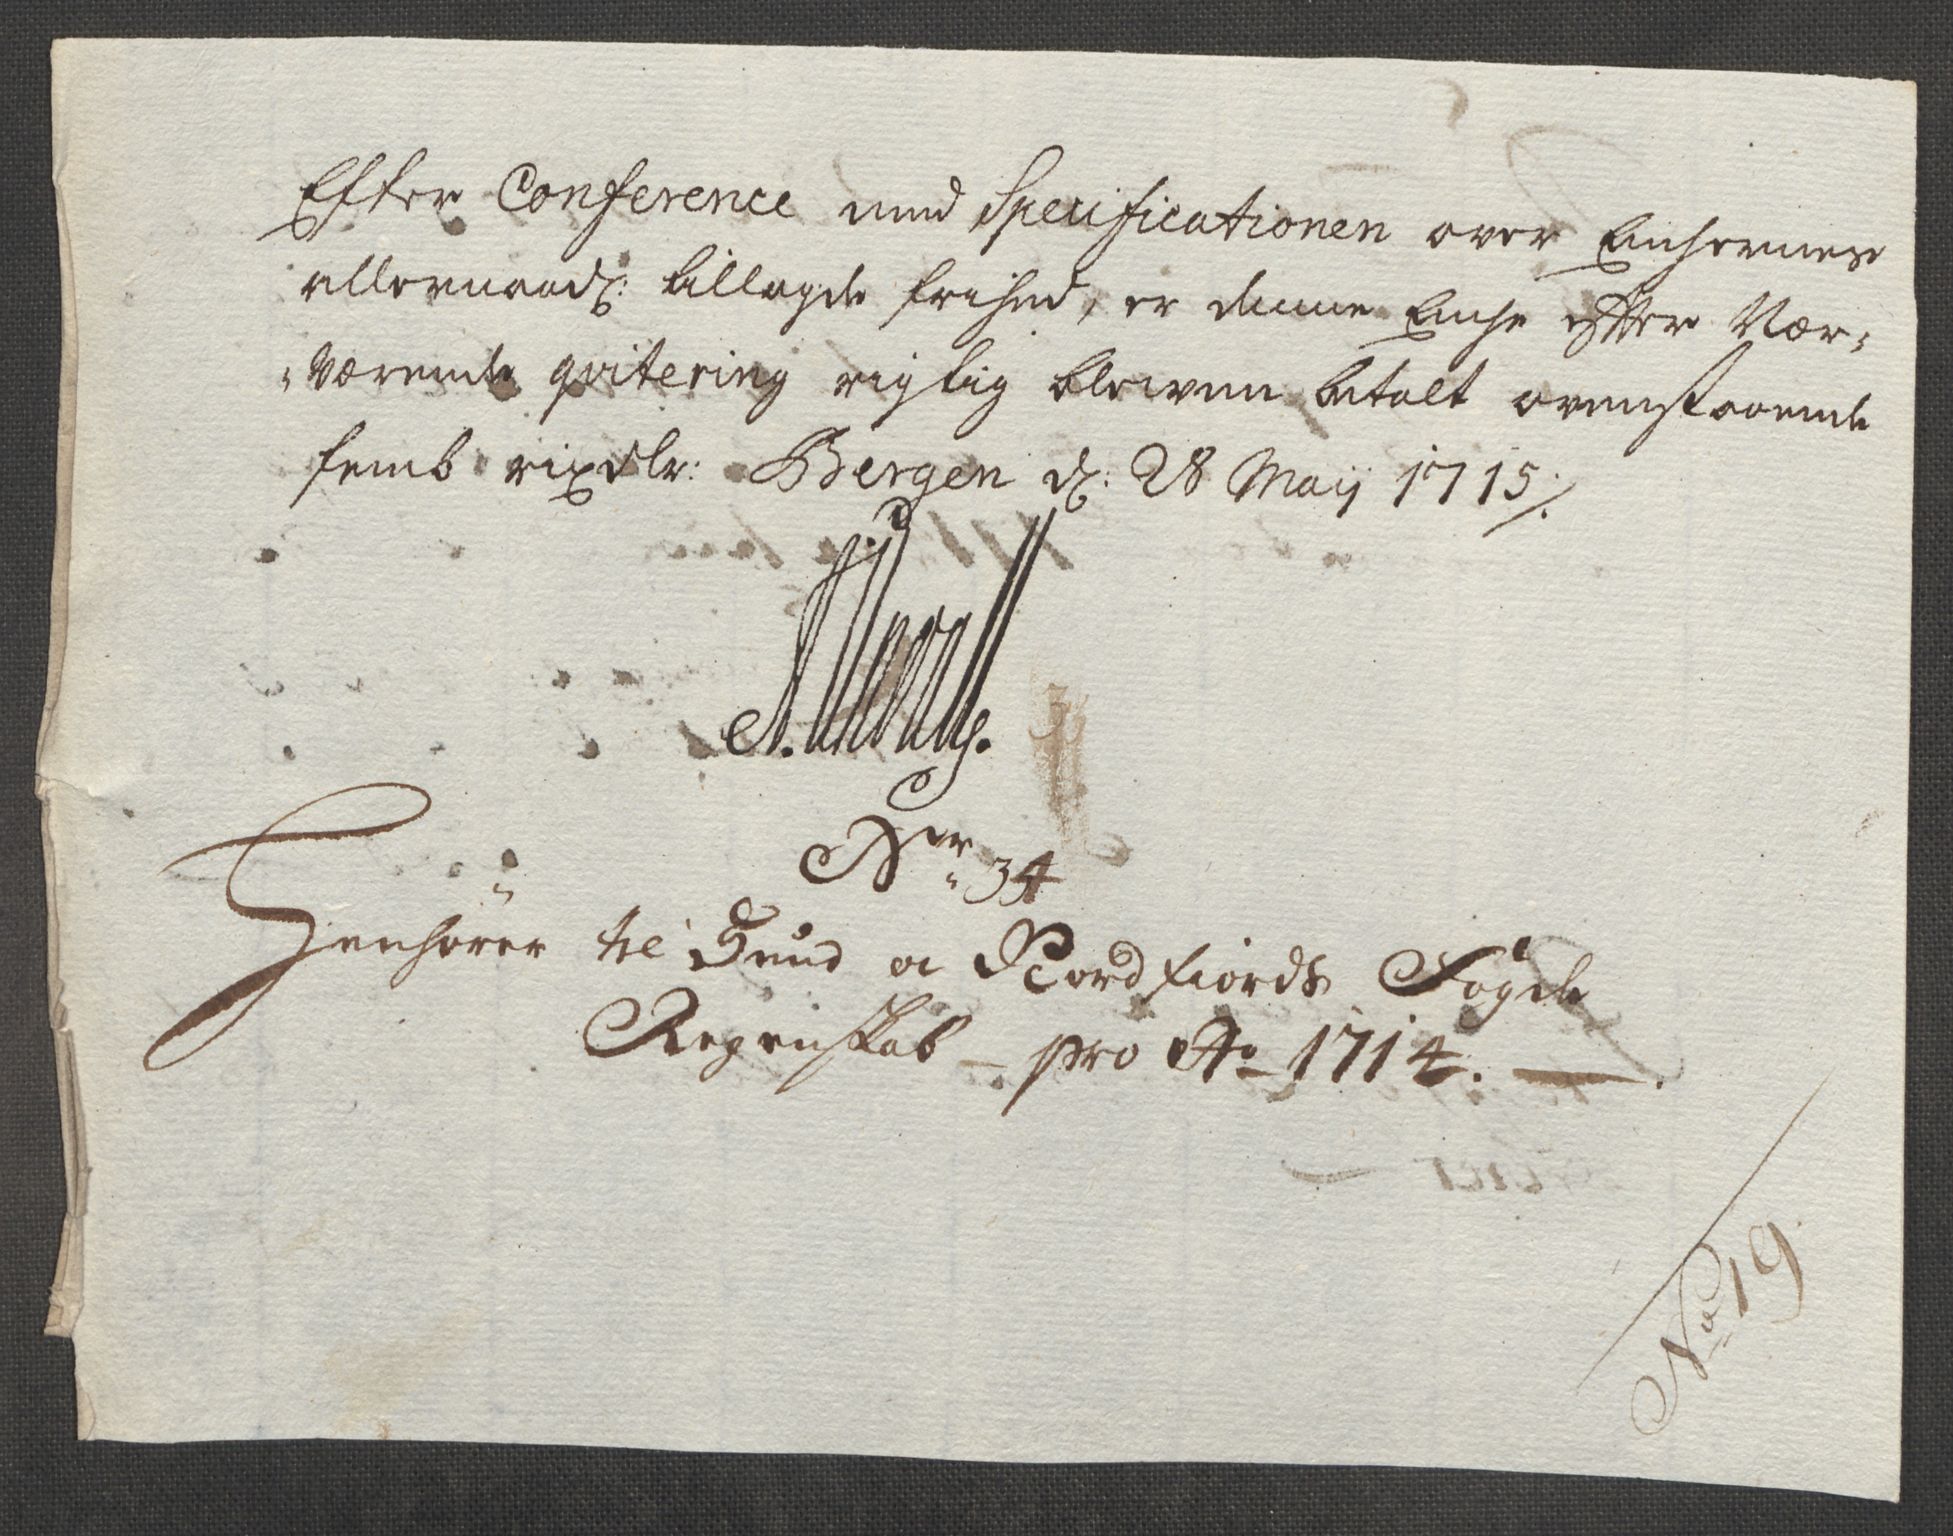 Efter Conference med Specificationen over Enchernes
allernaad: tillagde frihed, er denne Enche efter Nær-
-værende qvitering rigtig bleven betalt ovenstaaende
femb rixdlr: Bergen d: 28 Maij 1715/.
Ner 34
Henhörer til Sund og Nordfiords Fogde
Regenskab - pro Ao 1714.
No 19